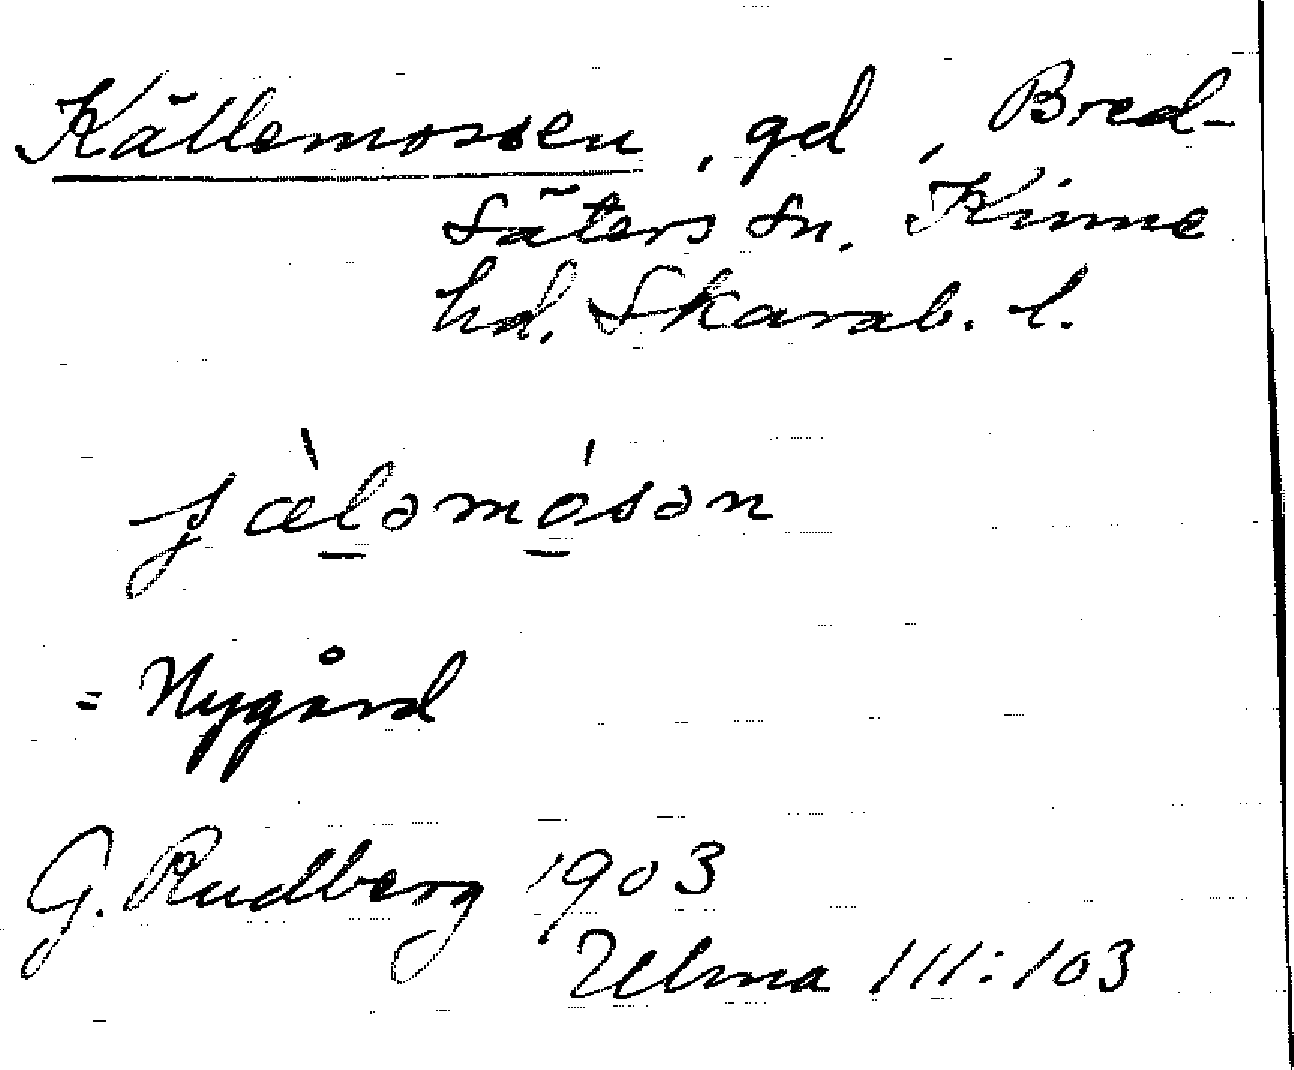 Källemossen, gd, Bred-
säters sn. Kinne
hd. Skarab. l.
ʃæ̀ləmósən
= Nygård
G. Rudberg 1903
Ulma 111:103